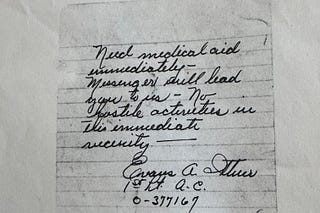 Need medical aid
immediately –
Messenger will lead
you to us – No
hostile activities in
this immediate
vicinity —
Evans A.
1st Lt. A.C.
O-377167